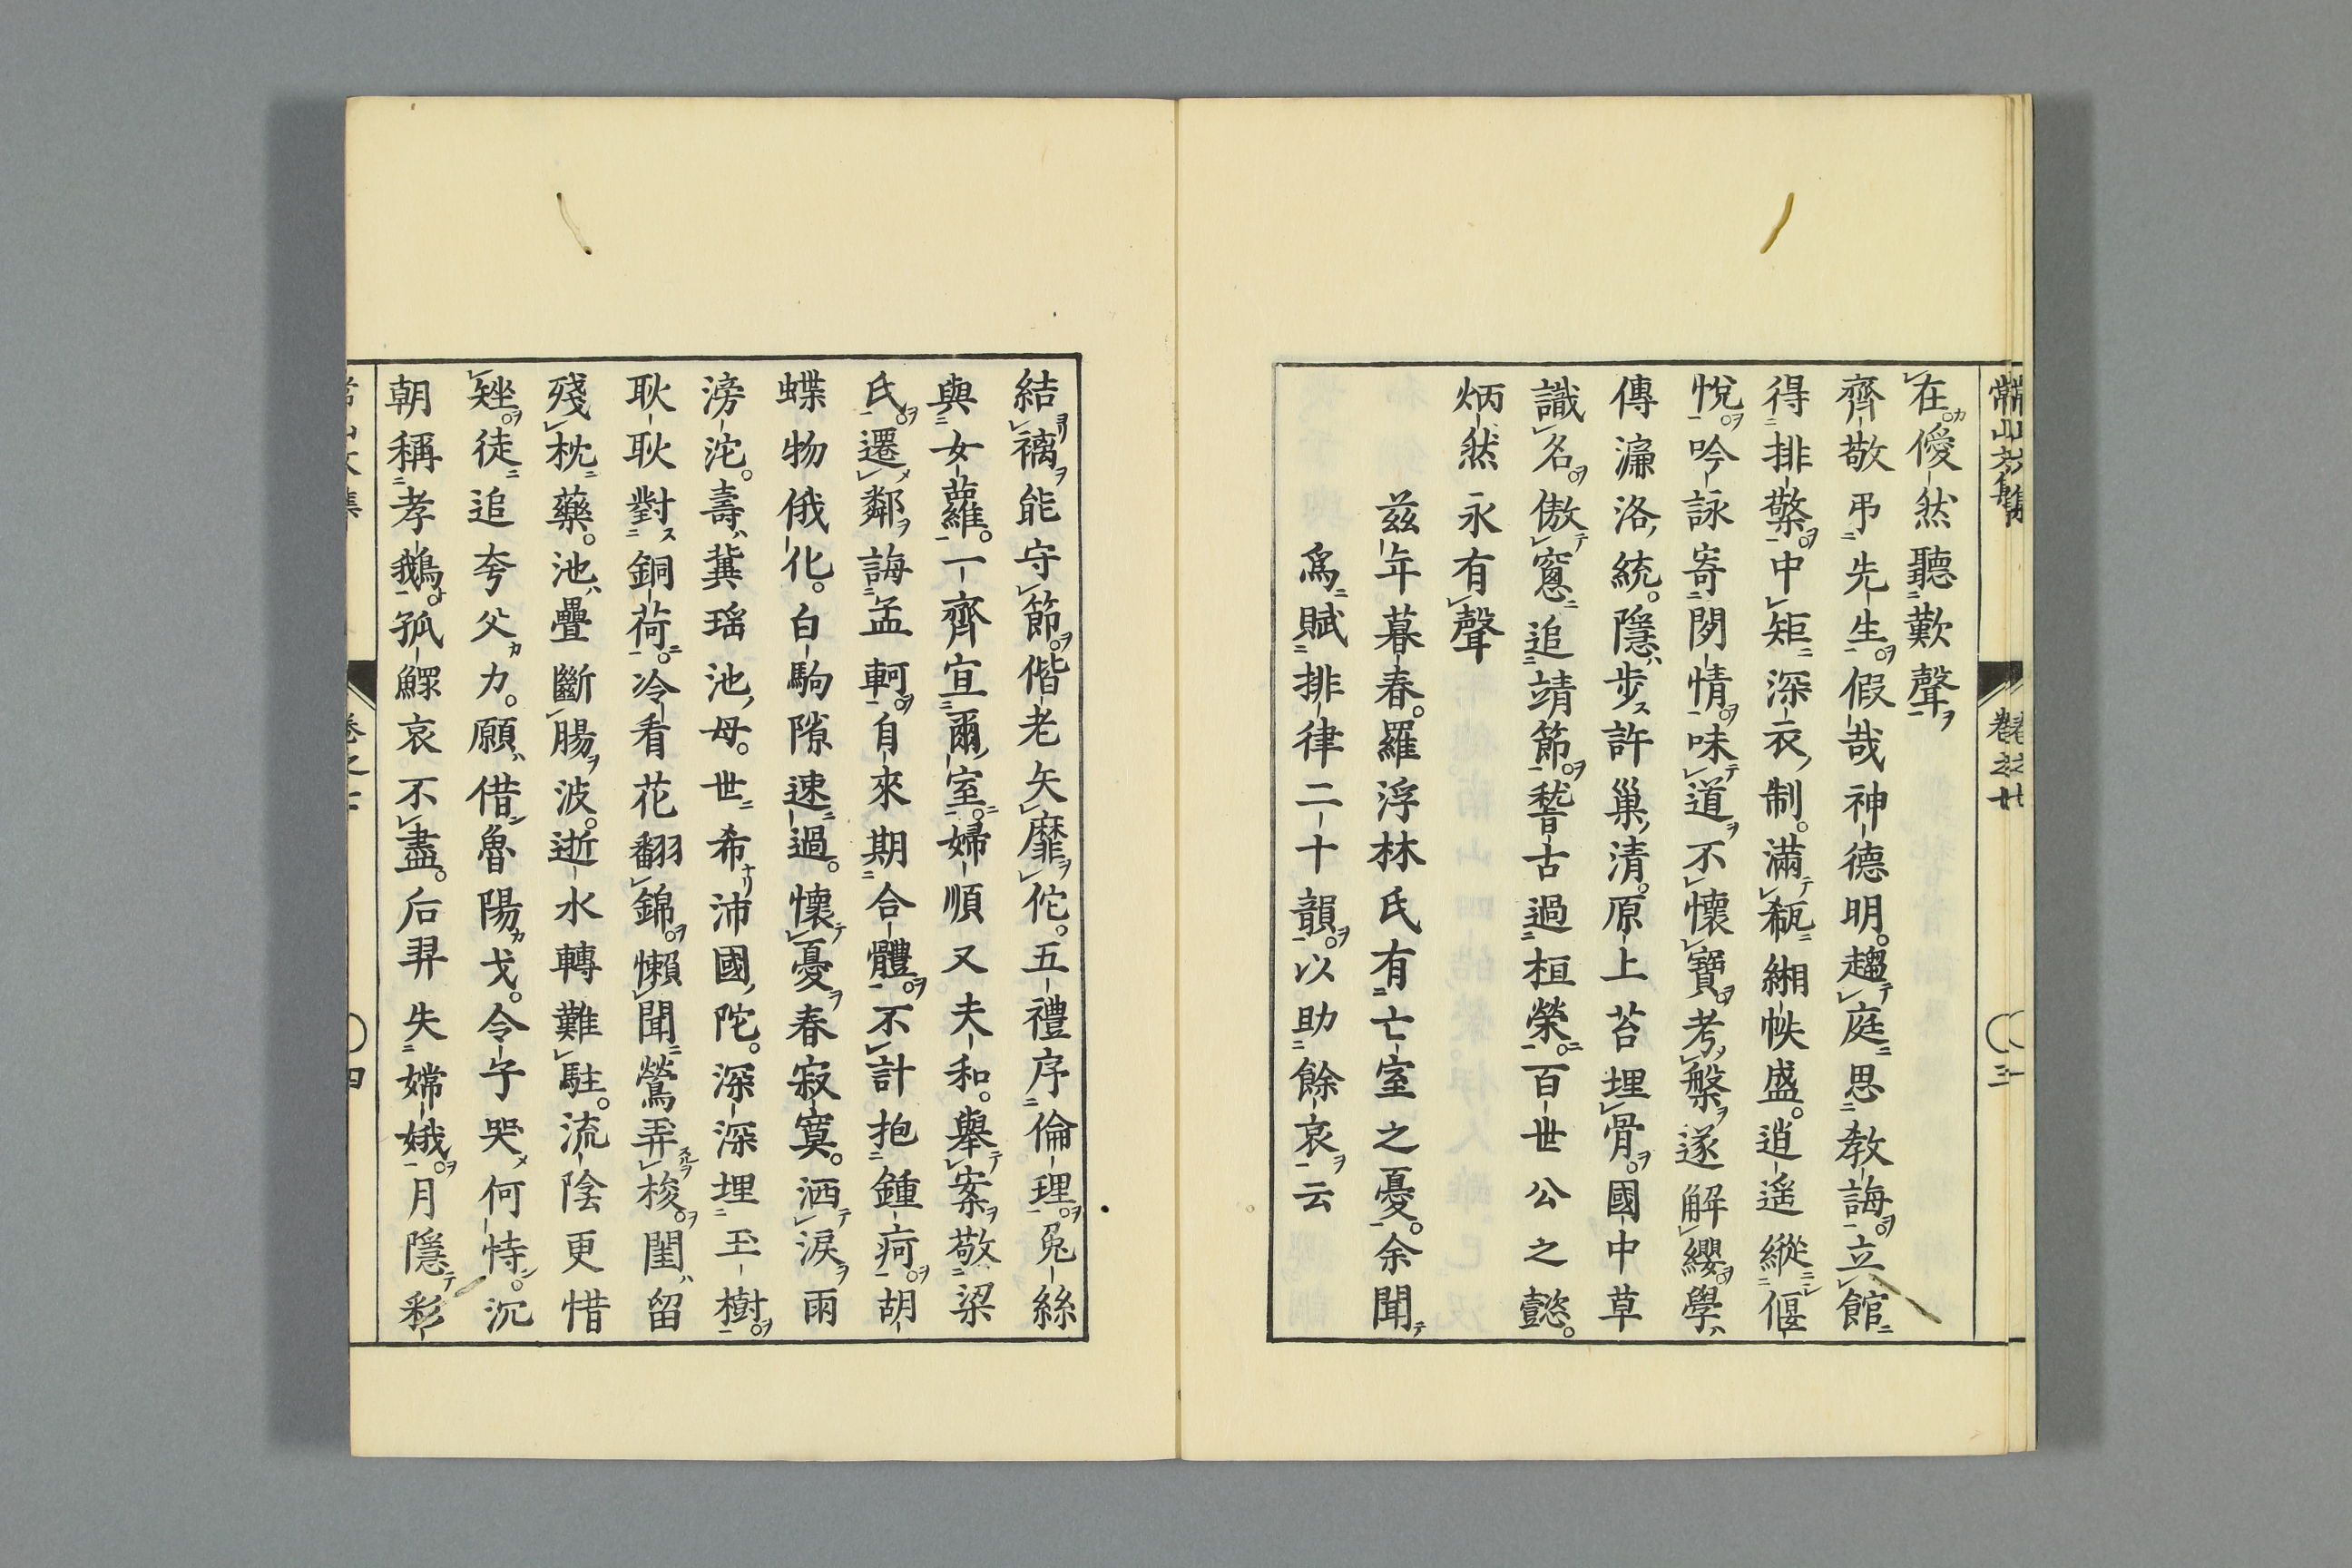 常山文集
卷之廿
三
在僾然聽歎聲
齊敬弔先生假哉神德明趨庭思教誨立館
得排檠中矩深衣制滿瓻緗帙盛逍遙縱偃
悅吟詠寄閑情味道不懷寶考槃遂解纓學
傳濂洛統隱步許巢清原上苔埋骨國中草
識名傲窻追靖節稽古過桓榮百世公之懿
炳然永有聲
茲年暮春羅浮林氏有亡室之憂余聞
爲賦排律二十韻以助餘哀云
結褵能守節偕老矢靡佗五禮序倫理兔絲
與女蘿一齊宜爾室婦順又夫和舉案敬梁
氏遷鄰誨孟軻自來期合體不計抱鍾痾胡
蝶物俄化白駒隙速過懷憂春寂寞洒淚雨
滂沱壽冀瑤池母世希沛國陀深深埋玉樹
耿耿對銅荷冷看花翻錦懶聞鶯弄梭閨留
殘枕藥池疊斷腸波逝水轉難駐流陰更惜
矬徒追夸父力願借魯陽戈令子哭何恃沉
朝稱孝鵝孤鰥哀不盡后羿失嫦娥月隱彩
四